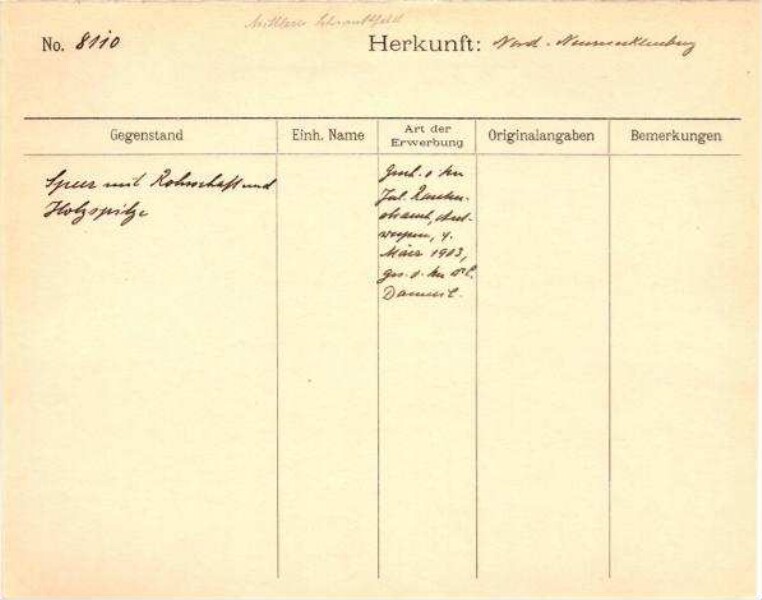 Mittleres Schrankfeld
No. 8110 Herkunft: Nord-Neumecklenburg
Gegenstand Einh. Name Art der Erwerbung Originalangaben Bemerkungen
Speer mit Rohrschaft und
Holzspitze
Gesch. v. Hn
Jul.
Ant-
werpen, 4.
März 1903,
ges. v. Hn